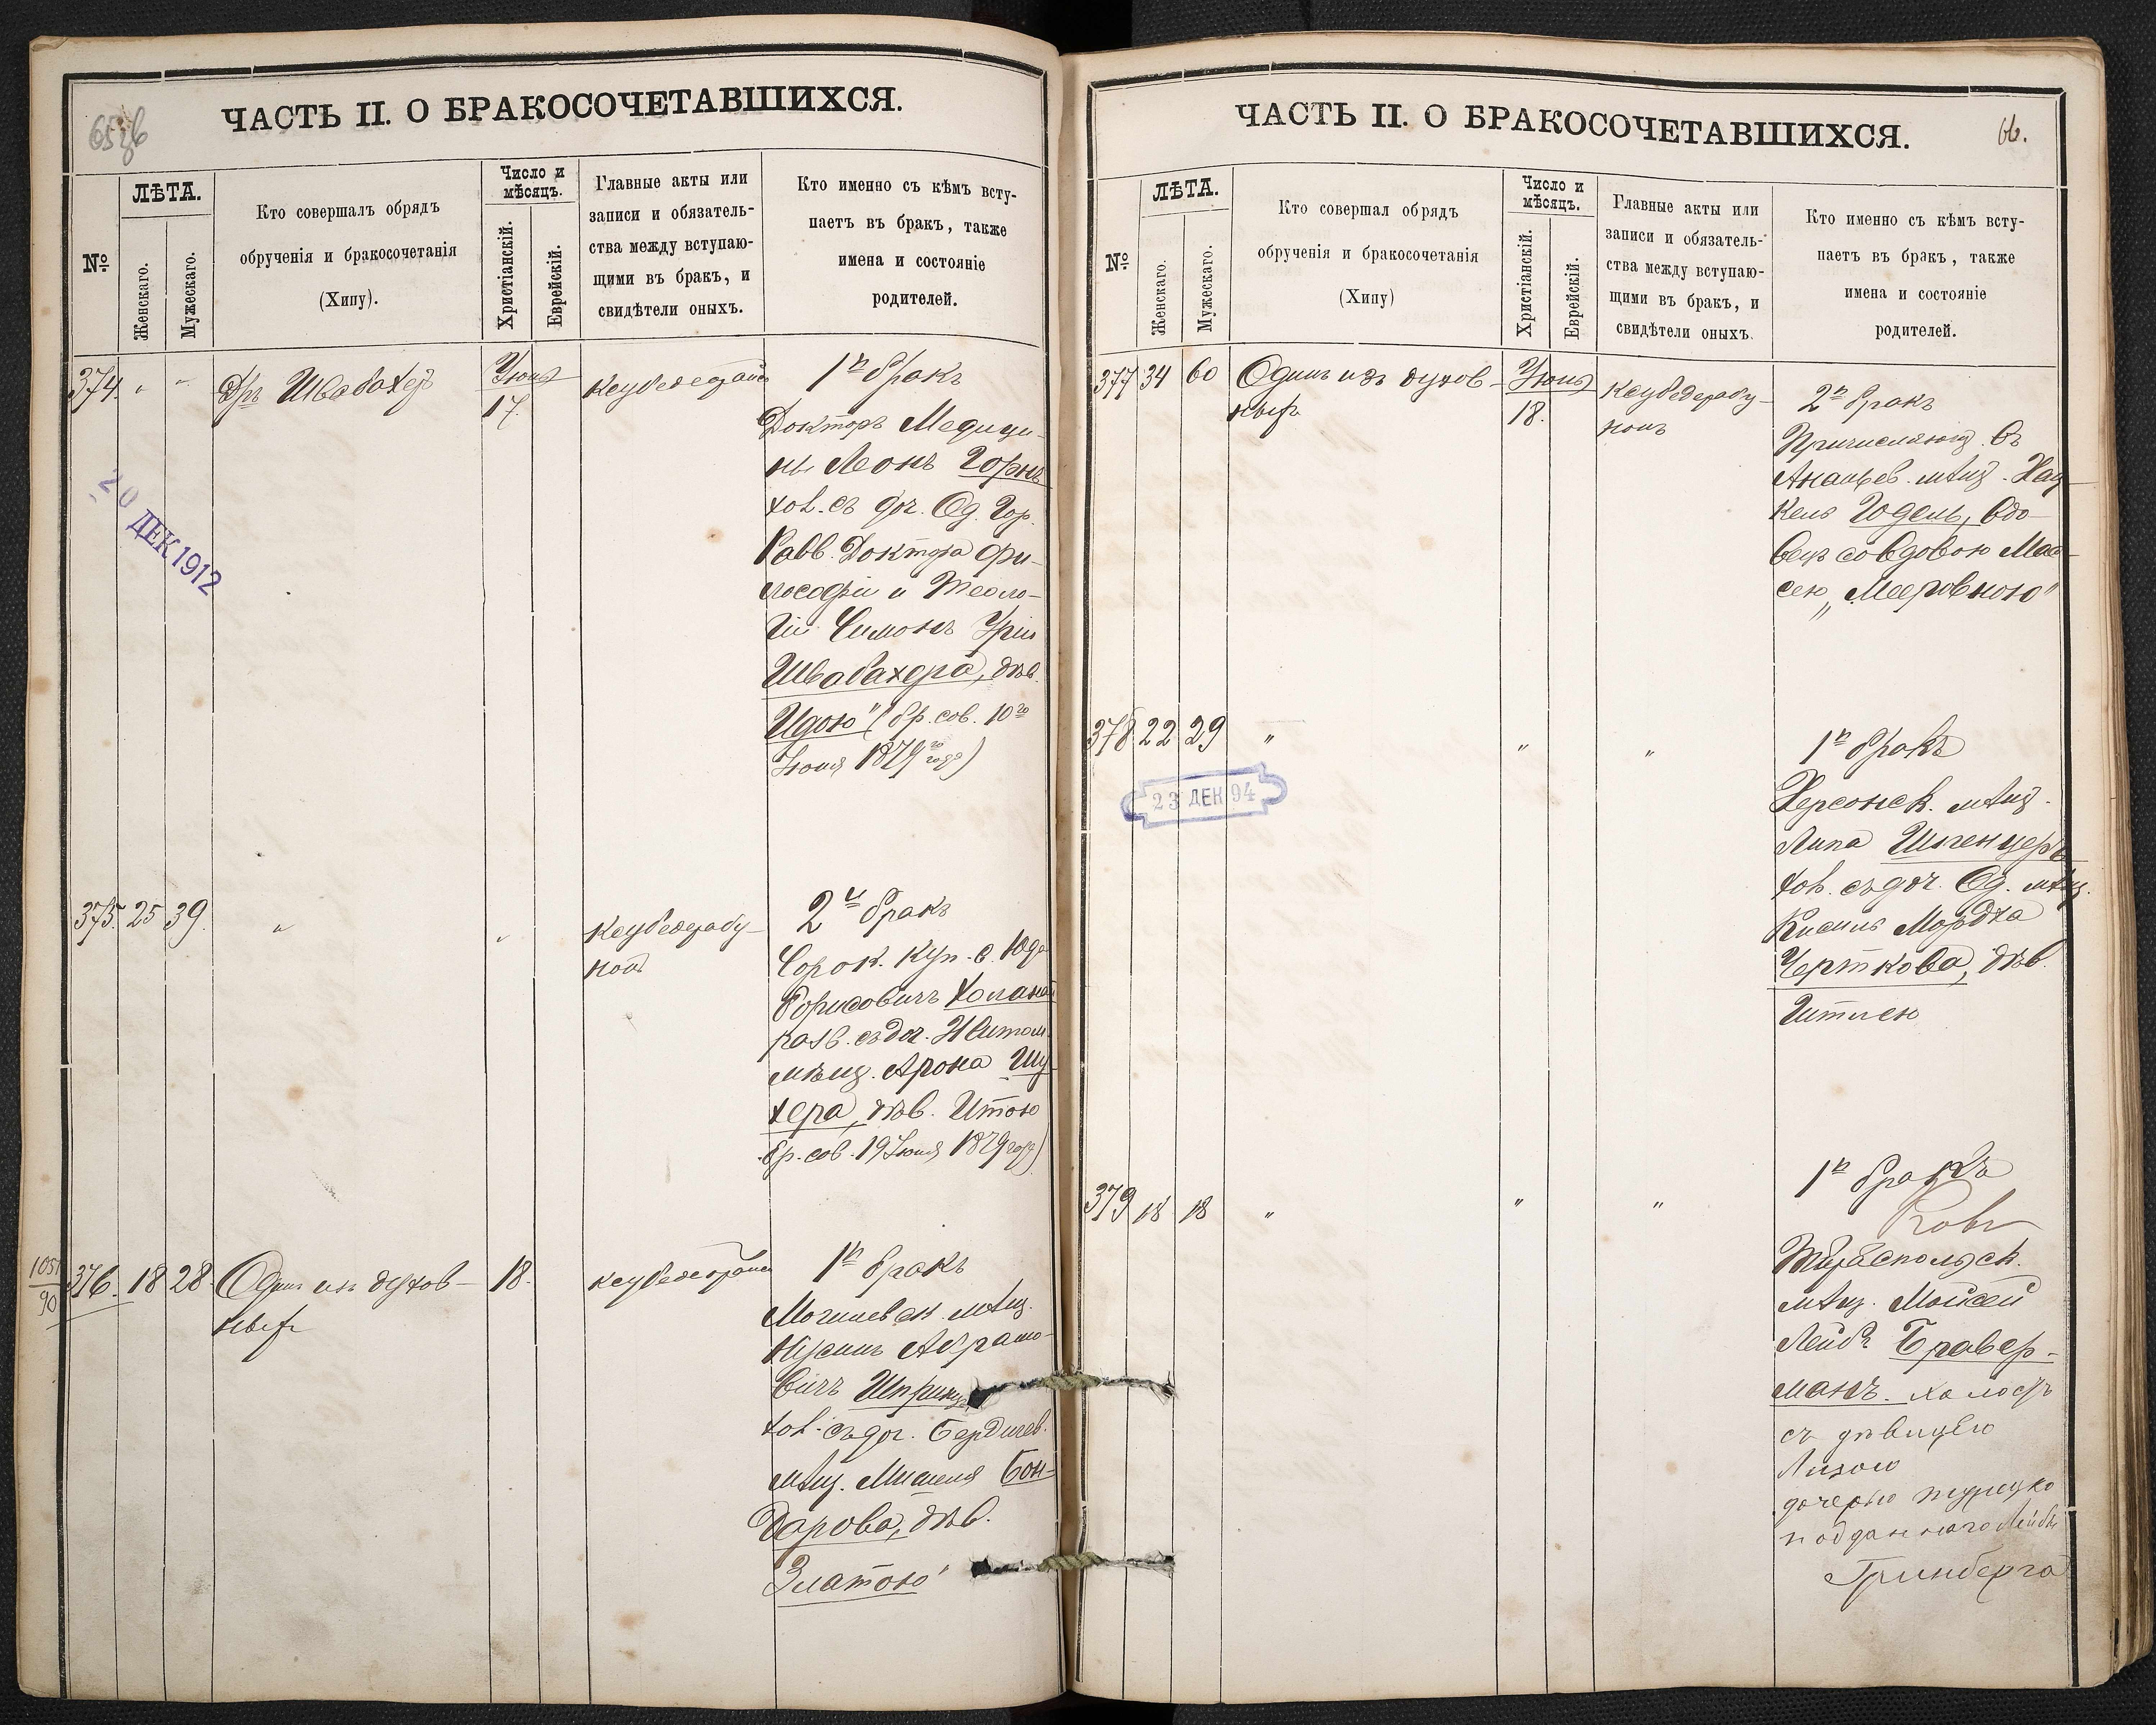 ЧАСТЬ II. О БРАКОСОЧЕТАВШИХСЯ.
№
ЛѢТА.
Женскаго.
Мужескаго.
Кто совершалъ обрядъ
обрученія и бракосочетанія
(Хипу).
Число и
мѣсяцъ.
Христіанскій.
Еврейскій.
Главные акты или
записи и обязатель-
ства между вступаю-
щими въ бракъ, и
свидѣтели оныхъ.
Кто именно съ кѣмъ всту-
паетъ въ бракъ, также
имена и состояніе
родителей.
374. " "
Дръ Швабахеръ
Іюня
17.
1й бракъ
Докторъ Медици-
ны Леонъ Горнъ
хол. съ доч. Од. Гор.
Равв. Доктора Фи-
лософіи и Теоло-
гіи Симонъ
Швабахера, дѣв.
Идою" (бр. сов. 10го
Іюня 1879го года)
20 ДЕК 1912
375. 25 39.
"
"
Кеуbедерабу-
2й бракъ
Сорок. куп. с.
Борисовичъ
разв. съ доч. Житом.
мѣщ. Арона Шу-
хера, дѣв. Итою
бр. сов. 19 Іюня 1879 года)
1051
90
376. 18 28.
Одинъ изъ духов-
ныхъ
18.
1й бракъ
Могилевск. мѣщ.
Нусинъ Абрамо-
вичъ
хол. съ доч. Бердичев.
мѣщ. Бон-
дарова, дѣв.
Златою"
ЧАСТЬ II. О БРАКОСОЧЕТАВШИХСЯ.
66.
№
ЛѢТА.
Женскаго.
Мужескаго.
Кто совершал обрядъ
обрученія и бракосочетанія
(Хипу)
Число и
мѣсяцъ.
Христіанскій.
Еврейскій.
Главные акты или
записи и обязатель-
ства между вступаю-
щими въ бракъ, и
свидѣтели оныхъ.
Кто именно съ кѣмъ всту-
паетъ въ бракъ, также
имена и состояніе
родителей.
377 34 60
Одинъ изъ духов-
ныхъ
Іюня
18.
2й бракъ
Причисляющ. въ
Ананьев. мѣщ. Хац-
кель Юдель, вдо-
вецъ со вдовою Мас-
сею "Мееровною"
378 22 29
"
"
"
23 ДЕК 94
1й бракъ
Херсонск. мѣщ.
Липа Шпенцеръ
хол. съ доч. Од. мѣщ.
Кисиль Мордха
Черткова, дѣв.
Итлею
379 18 18
"
"
"
1й бракъ
Тираспольск.
мѣщ. Мойсей
Лейбъ Бравер-
манъ. холостъ
съ дѣвицею
Лизою
дочерью турецко
подданнаго Лейбы
Гринберга